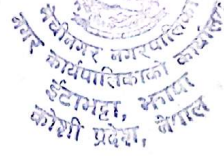 मेचीनगर नगरपालिका
नगर कार्यपालिकाको कार्यालय
ईटाभट्टा, झापा
कोशी प्रदेश, नेपाल